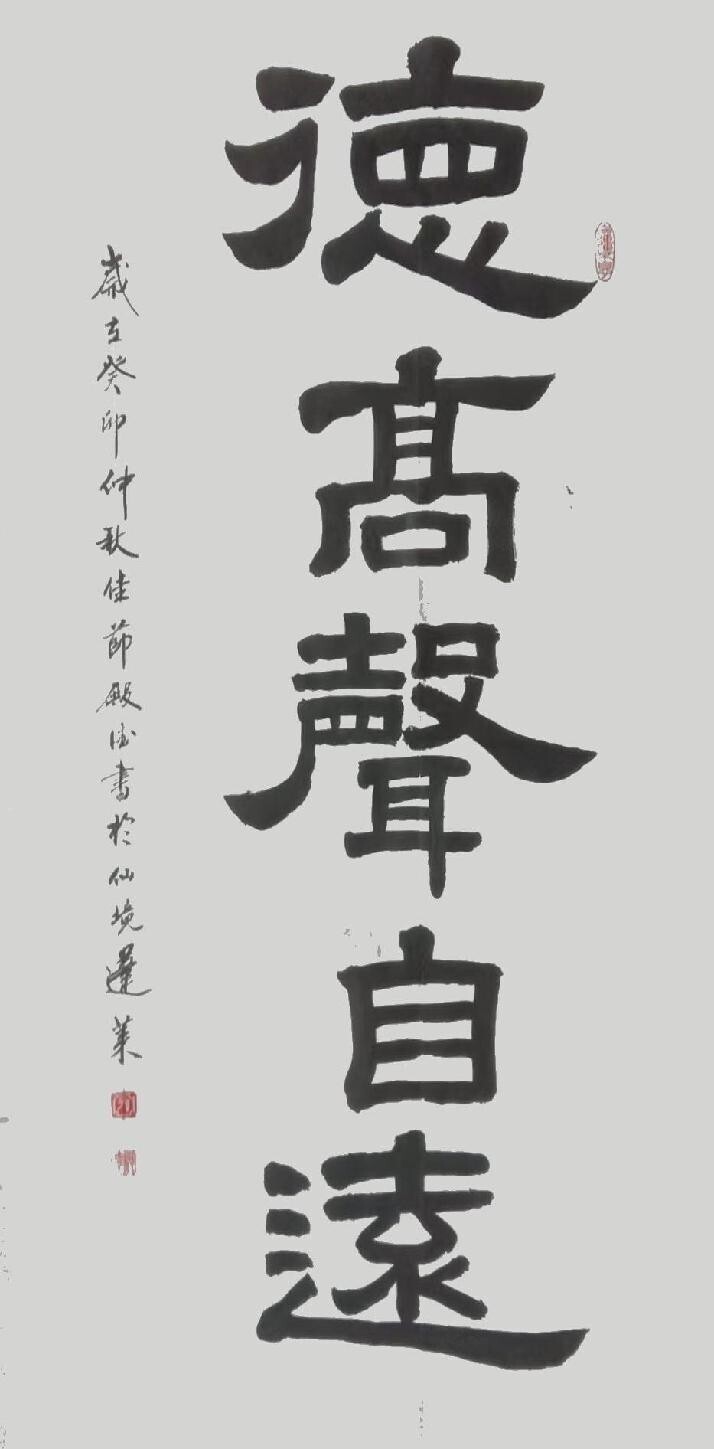 德高聲自遠
歲在癸卯仲秋佳節殿浩書於仙境蓬萊